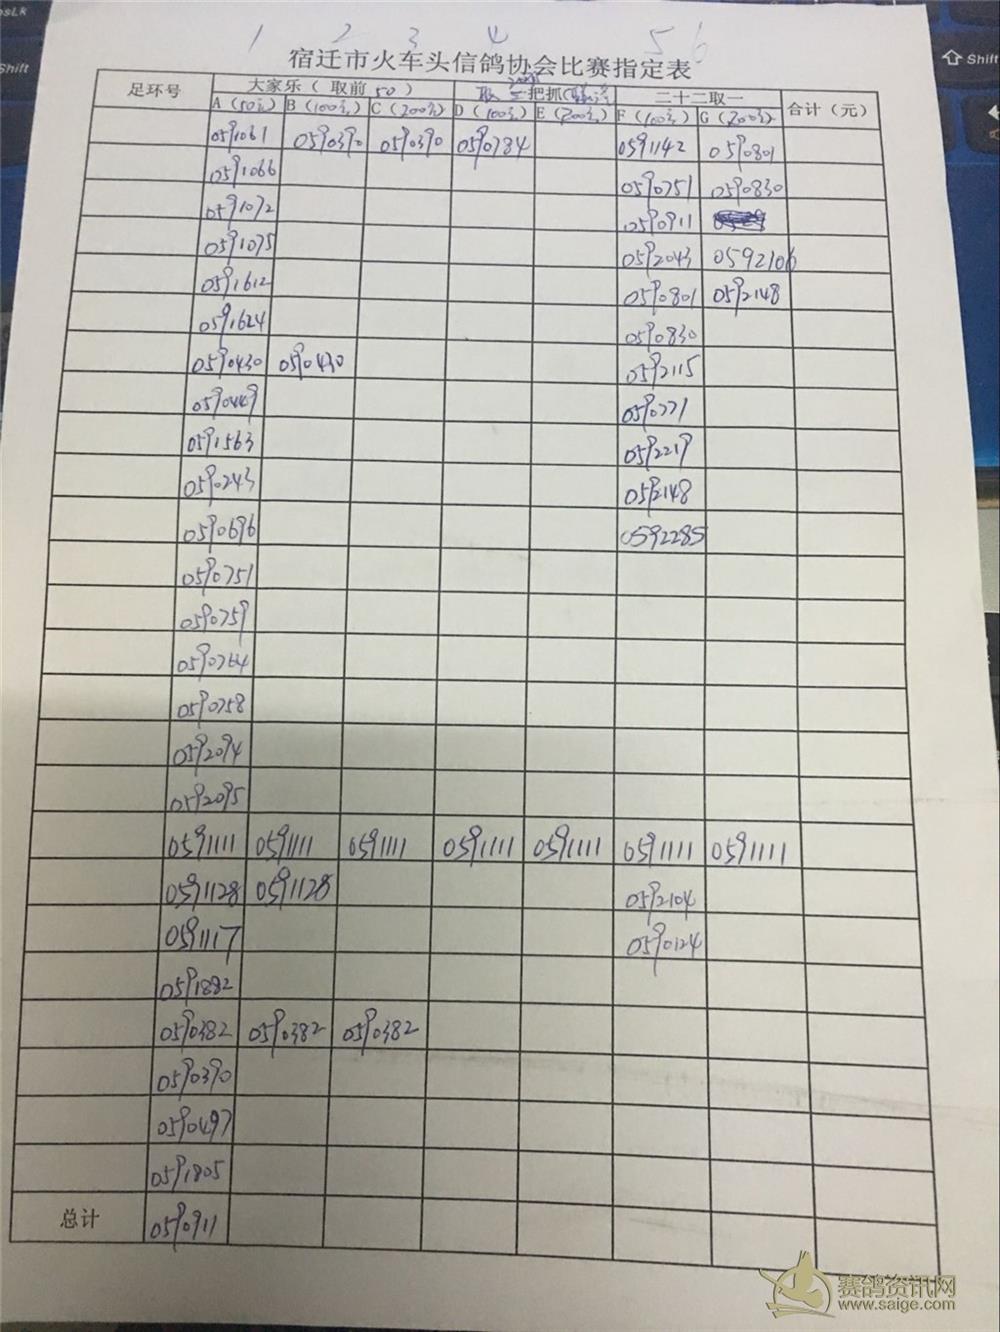 1 2 3 4 5 6
宿迁市火车头信鸽协会比赛指定表
足环号 大家乐（取前50） 取 一把抓 二十二取一 合计（元）
A（50元） B（100元） C（200元） D（100元） E（200元） F（100元） G（200元）
0591061 0590390 0590390 0590784 0591142 0590801
0591066 0590751 0590830
0591072 0590911
0591075 0592043 0592106
0591612 0590801 0592148
0591624 0590830
0590430 0590430 0592115
0590449 0590771
0591563 0592219
0590243 0592148
0590696 0592285
0590751
0590759
0590764
0590758
0592094
0592095
0591111 0591111 0591111 0591111 0591111 0591111 0591111
0591128 0591128 0592104
0591117 0590124
0591882
0590382 0590382 0590382
0590390
0590497
0591805
总计 0590911
Shift
Shift
赛鸽资讯网
www.saige.com